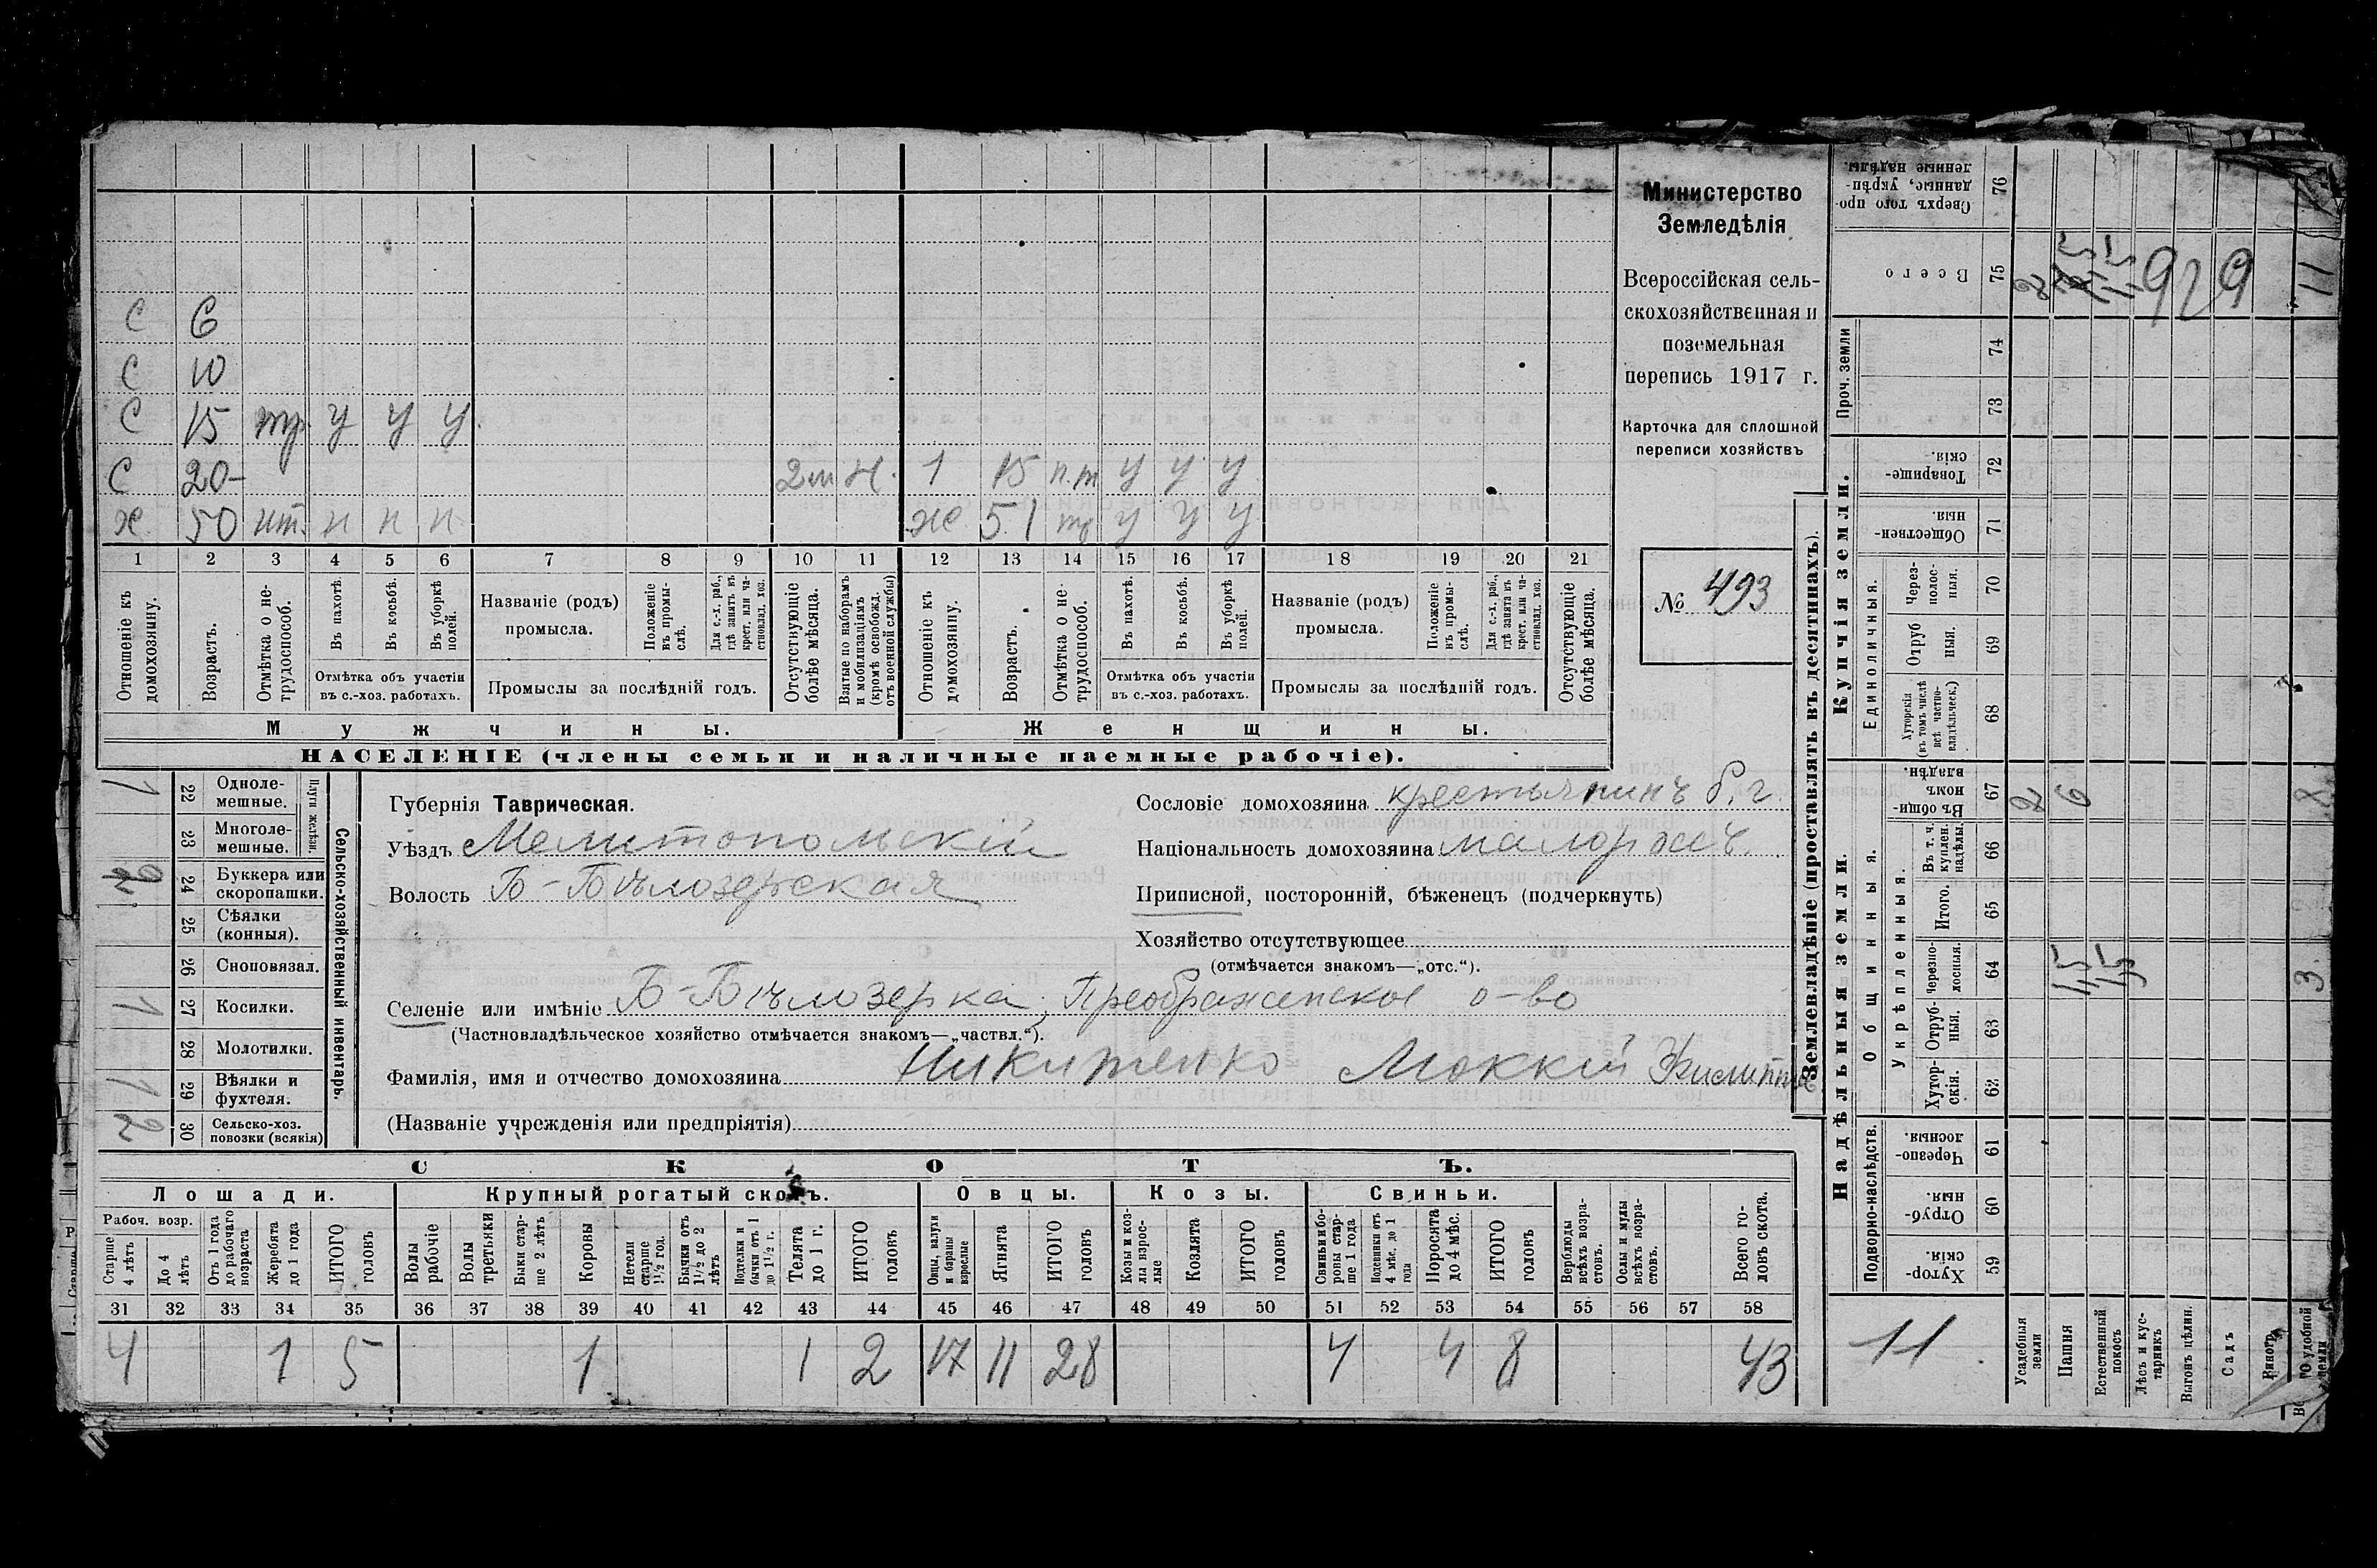 С 6
С 10
С 15 тр. у у у
С 20 2 м н. 1 15 п.т у у у
х. 50 нт. н н н ж 51 тр у у у
1 2 3 4 5 6 7 8 9 10 11 12 13 14 15 16 17 18 19 20 21
Отношеніе къ домохозяину.
Возрастъ.
Отмѣтка о нетрудоспособ.
Въ пахотѣ.
Въ косьбѣ.
Въ уборкѣ полей.
Отмѣтка объ участіи
въ с.-хоз. работахъ.
Названіе (родъ)
промысла.
Положеніе въ промыслѣ.
Для с.-х. раб., гдѣ занятъ въ крест. или частновлад. хоз.
Промыслы за послѣдній годъ.
Отсутствующіе болѣе мѣсяца.
Взятые по наборамъ и мобилизаціямъ (кромѣ освобожд. отъ военной службы)
Отношеніе къ домохозяину.
Возрастъ.
Отмѣтка о нетрудоспособ.
Въ пахотѣ.
Въ косьбѣ.
Въ уборкѣ полей.
Отмѣтка объ участіи
въ с.-хоз. работахъ.
Названіе (родъ)
промысла.
Положеніе въ промыслѣ.
Для с.-х. раб., гдѣ занята въ крест. или частновлад. хоз.
Промыслы за послѣдній годъ.
Отсутствующіе болѣе мѣсяца.
Мужчины. Женщины.
НАСЕЛЕНІЕ (члены семьи и наличные наемные рабочіе).
Министерство
Земледѣлія
Всероссійская сель-
скохозяйственная и
поземельная
перепись 1917 г.
Карточка для сплошной
переписи хозяйствъ
№ 493
Сельско-хозяйственный инвентарь.
Плуги желѣзн.
1 22 Одноле-
мешные.
23 Многоле-
мешные.
2 24 Буккера или
скоропашки.
25 Сѣялки
(конныя).
26 Сноповязал.
1 27 Косилки.
28 Молотилки.
1 29 Вѣялки и
фухтеля.
2 30 Сельско-хоз.
повозки (всякія)
Губернія Таврическая.
Уѣздъ Мелитопольскій
Волость Б-Бѣлозерская
Сословіе домохозяина крестьянинъ б. г.
Національность домохозяина малор
Приписной, посторонній, бѣженецъ (подчеркнуть)
Хозяйство отсутствующее
(отмѣчается знакомъ—„отс.“).
Селеніе или имѣніе Б-Бѣлозерка, Преображенское о-во
(Частновладѣльческое хозяйство отмѣчается знакомъ—„частвл.“).
Фамилія, имя и отчество домохозяина Никитенко Моккій Филипп
(Названіе учрежденія или предпріятія)
СКОТЪ.
Лошади. Крупный рогатый скотъ. Овцы. Козы. Свиньи.
Рабоч. возр.
Старше 4 лѣтъ
До 4 лѣтъ
Отъ 1 года до рабочаго возраста
Жеребята до 1 года
ИТОГО головъ
Волы рабочіе
Волы третьяки
Быки старше 2 лѣтъ
Коровы
Нетели старше 1½ год.
Бычки отъ 1½ до 2 лѣтъ
Подтелки и бычки отъ 1 до 1½ г.
Телята до 1 г.
ИТОГО головъ
Овцы, валухи и бараны взрослые
Ягнята
ИТОГО головъ
Козы и козлы взрослые
Козлята
ИТОГО головъ
Свиньи и боровы старше 1 года
Подсвинки отъ 4 мѣс. до 1 года
Поросята до 4 мѣс.
ИТОГО головъ
Верблюды всѣхъ возрастовъ.
Ослы и мулы всѣхъ возрастовъ.
Всего головъ скота.
31 32 33 34 35 36 37 38 39 40 41 42 43 44 45 46 47 48 49 50 51 52 53 54 55 56 57 58
4 1 5 1 1 2 17 11 28 4 4 8 43
Землевладѣніе (проставлять въ десятинахъ).
Купчія земли.
Надѣльныя земли.
Сверхъ того проданные, укрѣпленные надѣлы. 76
Всего 75 2 9 2 9 11
Проч. земли 74
73
Товарищескія. 72
Общественныя. 71
Единоличныя.
Черезполосныя. 70
Отрубныя. 69
Хуторскія (въ томъ числѣ всѣ частновладѣльческ.) 68
Общинныя.
Въ общинномъ владѣн. 67 2 6 8
Укрѣпленныя.
Въ т. ч. куплен. надѣлы. 66
Итого. 65
Черезполосныя. 64 3
Отрубныя. 63
Хуторскія. 62
Подворно-наслѣдств.
Черезполосныя. 61
Отрубныя. 60
Хуторскія. 59
11
Усадебныя земли
Пашня
Естественный покосъ
Лѣсъ и кустарникъ
Выгонъ цѣлин.
Садъ
Виногр.
го удобной земли